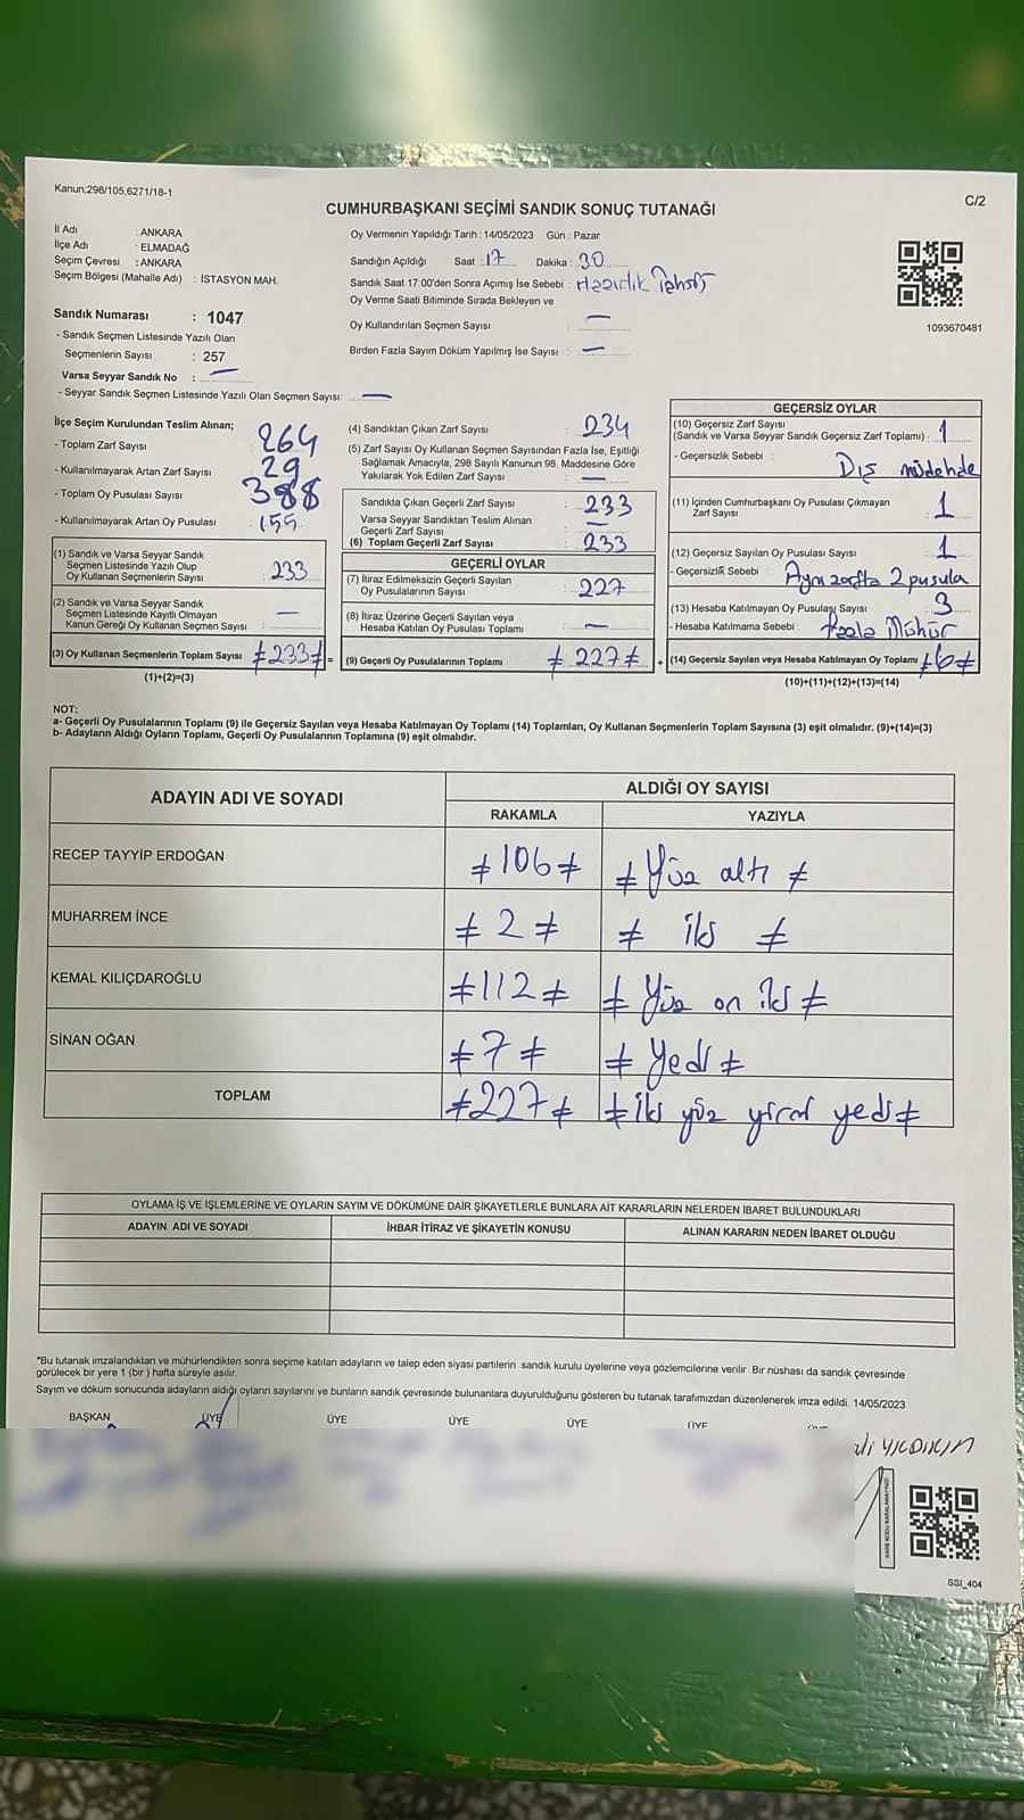 Kanun;298/105,6271/18-1
C/2
CUMHURBAŞKANI SEÇİMİ SANDIK SONUÇ TUTANAĞI
İl Adı : ANKARA
İlçe Adı : ELMADAĞ
Seçim Çevresi : ANKARA
Seçim Bölgesi (Mahalle Adı) : İSTASYON MAH.
Sandık Numarası : 1047
- Sandık Seçmen Listesinde Yazılı Olan
Seçmenlerin Sayısı : 257
Varsa Seyyar Sandık No : —
- Seyyar Sandık Seçmen Listesinde Yazılı Olan Seçmen Sayısı: —
Oy Vermenin Yapıldığı Tarih : 14/05/2023 Gün : Pazar
Sandığın Açıldığı Saat : 17 Dakika : 30
Sandık Saat 17:00'den Sonra Açımış İse Sebebi : Hazırlık
Oy Verme Saati Bitiminde Sırada Bekleyen ve
Oy Kullandırılan Seçmen Sayısı : —
Birden Fazla Sayım Döküm Yapılmış İse Sayısı : —
1093670481
İlçe Seçim Kurulundan Teslim Alınan;
- Toplam Zarf Sayısı : 264
- Kullanılmayarak Artan Zarf Sayısı : 29
- Toplam Oy Pusulası Sayısı : 388
- Kullanılmayarak Artan Oy Pusulası : 155
(1) Sandık ve Varsa Seyyar Sandık
Seçmen Listesinde Yazılı Olup
Oy Kullanan Seçmenlerin Sayısı : 233
(2) Sandık ve Varsa Seyyar Sandık
Seçmen Listesinde Kayıtlı Olmayan
Kanun Gereği Oy Kullanan Seçmen Sayısı : —
(3) Oy Kullanan Seçmenlerin Toplam Sayısı ≠233≠ =
(1)+(2)=(3)
(4) Sandıktan Çıkan Zarf Sayısı : 234
(5) Zarf Sayısı Oy Kullanan Seçmen Sayısından Fazla İse, Eşitliği
Sağlamak Amacıyla, 298 Sayılı Kanunun 98. Maddesine Göre
Yakılarak Yok Edilen Zarf Sayısı : —
Sandıkta Çıkan Geçerli Zarf Sayısı : 233
Varsa Seyyar Sandıktan Teslim Alınan
Geçerli Zarf Sayısı : —
(6) Toplam Geçerli Zarf Sayısı : 233
GEÇERLİ OYLAR
(7) İtiraz Edilmeksizin Geçerli Sayılan
Oy Pusulalarının Sayısı : 227
(8) İtiraz Üzerine Geçerli Sayılan veya
Hesaba Katılan Oy Pusulası Toplamı : —
(9) Geçerli Oy Pusulalarının Toplamı ≠ 227 ≠ +
GEÇERSİZ OYLAR
(10) Geçersiz Zarf Sayısı
(Sandık ve Varsa Seyyar Sandık Geçersiz Zarf Toplamı) : 1
- Geçersizlik Sebebi : Dış müdehde
(11) İçinden Cumhurbaşkanı Oy Pusulası Çıkmayan
Zarf Sayısı : 1
(12) Geçersiz Sayılan Oy Pusulası Sayısı : 1
- Geçersizlik Sebebi : Aynı zarfta 2 pusula
(13) Hesaba Katılmayan Oy Pusulası Sayısı : 3
- Hesaba Katılmama Sebebi : Fazla Mühür
(14) Geçersiz Sayılan veya Hesaba Katılmayan Oy Toplamı ≠6≠
(10)+(11)+(12)+(13)=(14)
NOT:
a- Geçerli Oy Pusulalarının Toplamı (9) ile Geçersiz Sayılan veya Hesaba Katılmayan Oy Toplamı (14) Toplamları, Oy Kullanan Seçmenlerin Toplam Sayısına (3) eşit olmalıdır. (9)+(14)=(3)
b- Adayların Aldığı Oyların Toplamı, Geçerli Oy Pusulalarının Toplamına (9) eşit olmalıdır.
ADAYIN ADI VE SOYADI
ALDIĞI OY SAYISI
RAKAMLA YAZIYLA
RECEP TAYYİP ERDOĞAN ≠ 106 ≠ ≠ Yüz altı ≠
MUHARREM İNCE ≠ 2 ≠ ≠ iki ≠
KEMAL KILIÇDAROĞLU ≠ 112 ≠ ≠ Yüz on iki ≠
SİNAN OĞAN ≠ 7 ≠ ≠ Yedi ≠
TOPLAM ≠ 227 ≠ ≠ iki yüz yirmi yedi ≠
OYLAMA İŞ VE İŞLEMLERİNE VE OYLARIN SAYIM VE DÖKÜMÜNE DAİR ŞİKAYETLERLE BUNLARA AİT KARARLARIN NELERDEN İBARET BULUNDUKLARI
ADAYIN ADI VE SOYADI İHBAR İTİRAZ VE ŞİKAYETİN KONUSU ALINAN KARARIN NEDEN İBARET OLDUĞU
*Bu tutanak imzalandıktan ve mühürlendikten sonra seçime katılan adayların ve talep eden siyasi partilerin sandık kurulu üyelerine veya gözlemcilerine verilir. Bir nüshası da sandık çevresinde
görülecek bir yere 1 (bir ) hafta süreyle asılır.
Sayım ve döküm sonucunda adayların aldığı oyların sayılarını ve bunların sandık çevresinde bulunanlara duyurulduğunu gösteren bu tutanak tarafımızdan düzenlenerek imza edildi. 14/05/2023
BAŞKAN ÜYE ÜYE ÜYE ÜYE ÜYE
YILDIRIM
KARE KODU KARALAMAYINIZ!
SSI_404